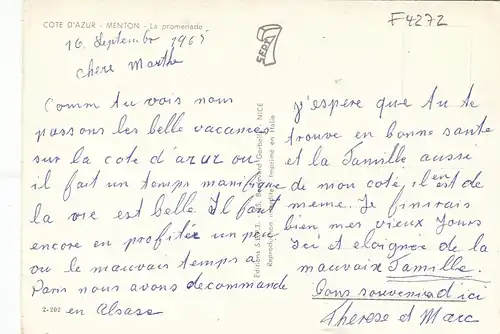 COTE D'AZUR - MENTON - La promenade
F4272
16 Septembre 1965
chere Marthe
SEPT
Comm tu vois nous
passons les belle vacances
sur la cote d'azur ou
il fait un temps manifique
la vie est belle Il faut
encore en profiter un peu
ou le mauvais temps a
Paris nous avons decommande
en Alsase
2-202
NICE
Reproduction Imprimé en Italie
j'espère que tu te
trouve en bonne santé
et la Famille aussi
de mon coté, il en est de
meme. Je finirais
bien mes vieux Jours
Ici et eloignée de la
mauvaix Famille.
Bons souvenirs d'ici
Therese et Marc